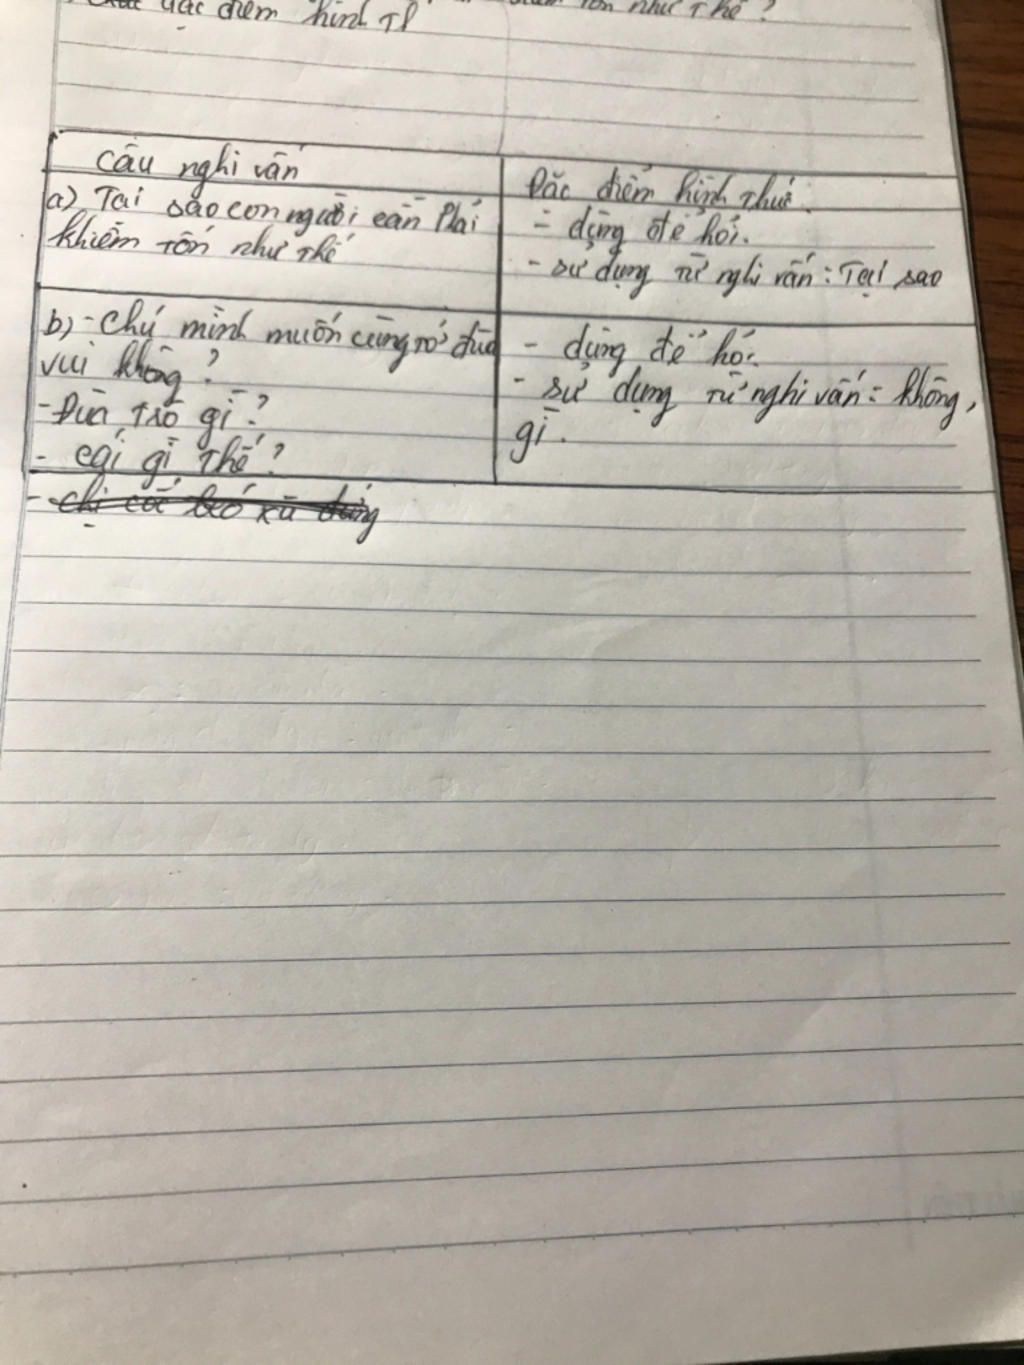 đặc điểm hình
như thế?
Câu nghi vấn
Đặc điểm hình thức
a) Tại sao con người cần phải
khiêm tốn như thế
- dùng để hỏi.
- sử dụng từ nghi vấn: Tại sao
b) - Chú mình muốn cùng tớ đùa
vui không?
- Đùa trò gì?
- cái gì thế?
- dùng để hỏi.
- sử dụng từ nghi vấn: không,
gì.